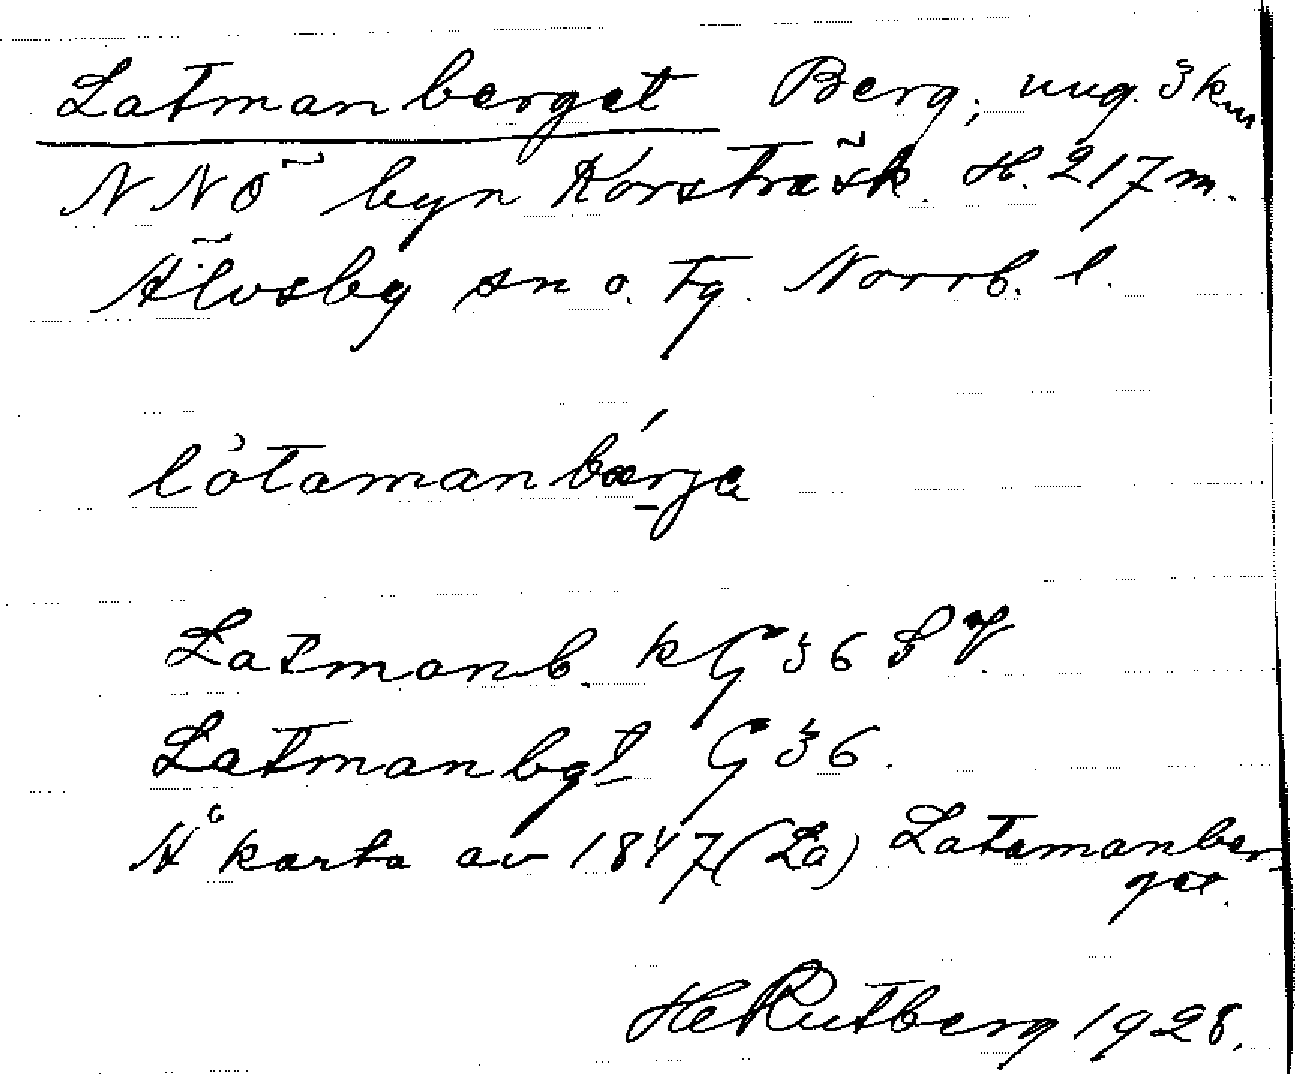 Latmanberget Berg, ung. 3 km
NNÖ byn Korsträsk. H. 217 m.
Älvsby sn o. tg. Norrb. l.
lòtamanbǽrja
Latmanb. kG 36
Latmanbgt G 36.
Å karta av 1847 (La) Latamanber-
get.
HeRutberg 1928.